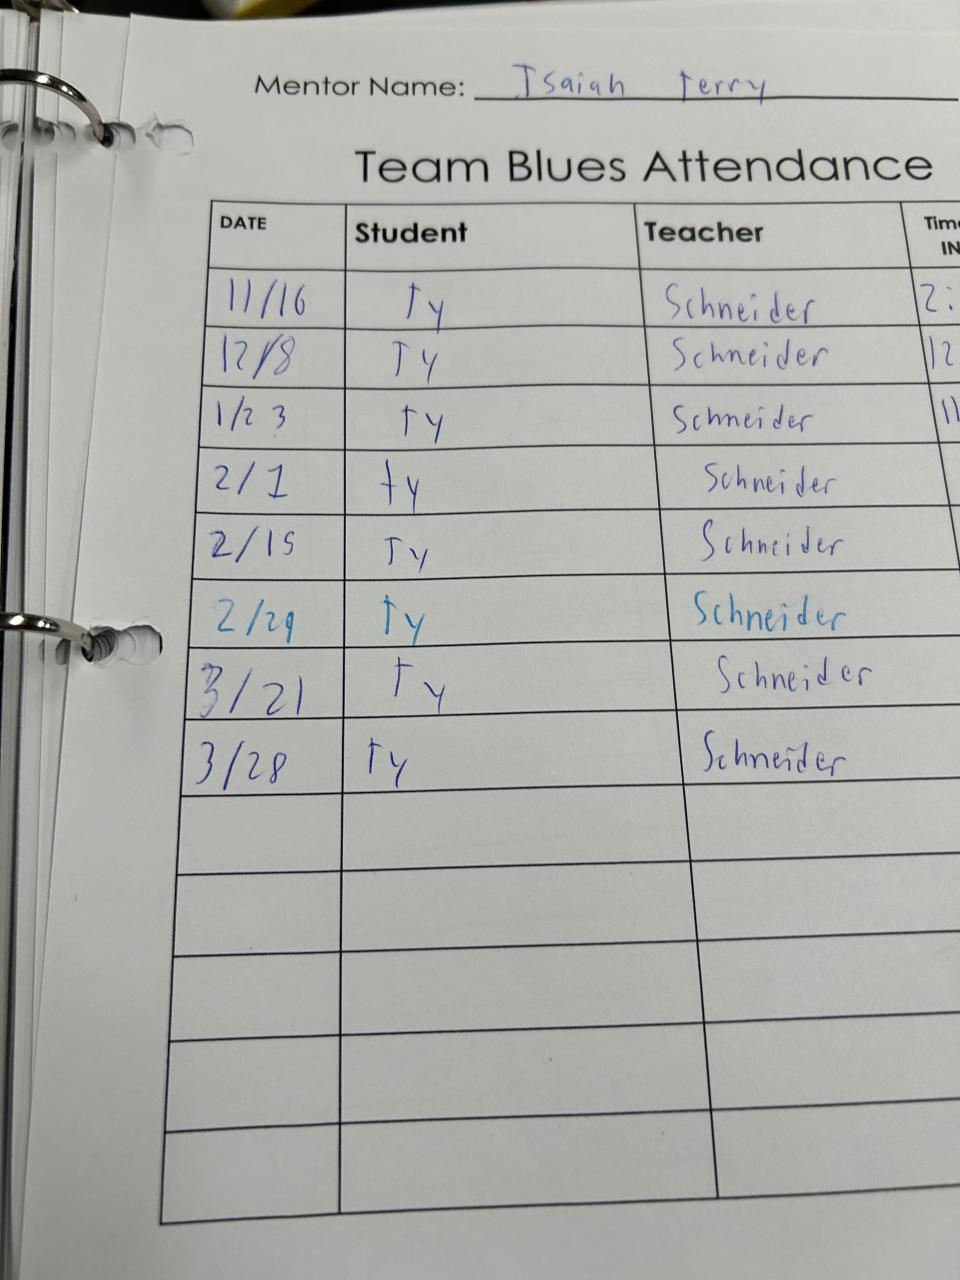 Mentor Name: Isaiah Terry
Team Blues Attendance
DATE Student Teacher Time IN
11/16 Ty Schneider 2:
12/8 Ty Schneider 12
1/23 Ty Schneider 11
2/1 ty Schneider
2/15 Ty Schneider
2/29 Ty Schneider
3/21 Ty Schneider
3/28 Ty Schneider